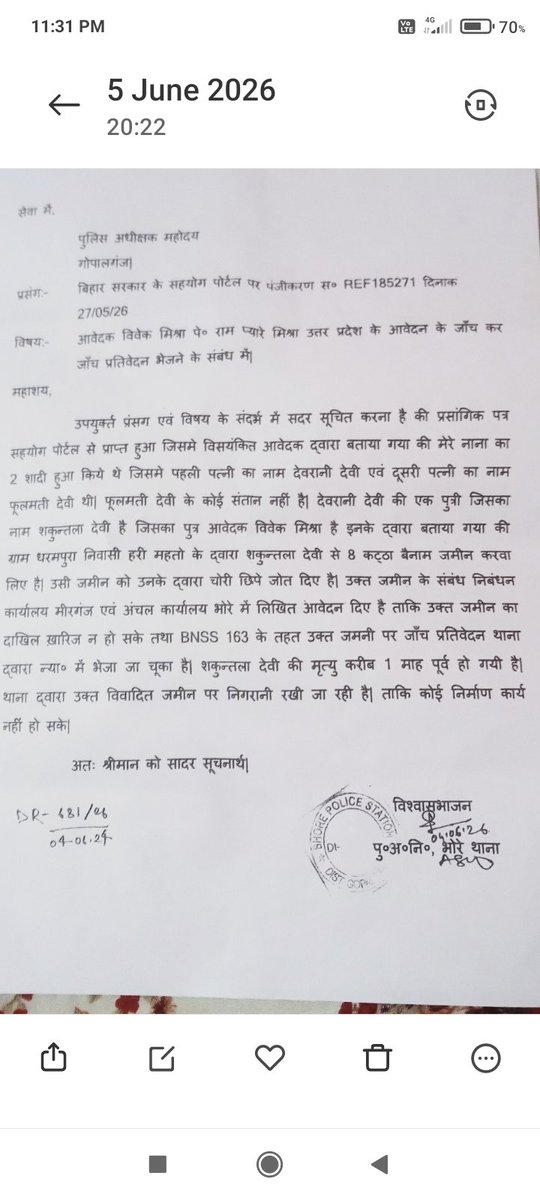 11:31 PM
Vo LTE 4G 70%
5 June 2026
20:22
सेवा में,
पुलिस अधीक्षक महोदय
गोपालगंज|
प्रसंग:- बिहार सरकार के सहयोग पोर्टल पर पंजीकरण स० REF185271 दिनाक
27/05/26
विषय:- आवेदक विवेक मिश्रा पे० राम प्यारे मिश्रा उत्तर प्रदेश के आवेदन के जाँच कर
जाँच प्रतिवेदन भेजने के संबंध में|
महाशय,
उपयुर्क्त प्रंसग एवं विषय के संदर्भ में सदर सूचित करना है की प्रसांगिक पत्र
सहयोग पोर्टल से प्राप्त हुआ जिसमे विसयंकित आवेदक द्वारा बताया गया की मेरे नाना का
2 शादी हुआ किये थे जिसमे पहली पत्नी का नाम देवरानी देवी एवं दूसरी पत्नी का नाम
फूलमती देवी थी| फूलमती देवी के कोई संतान नहीं है| देवरानी देवी की एक पुत्री जिसका
नाम शकुन्तला देवी है जिसका पुत्र आवेदक विवेक मिश्रा है इनके द्वारा बताया गया की
ग्राम धरमपुरा निवासी हरी महतो के द्वारा शकुन्तला देवी से 8 कट्ठा बैनाम जमीन करवा
लिए है| उसी जमीन को उनके द्वारा चोरी छिपे जोत दिए है| उक्त जमीन के संबंध निबंधन
कार्यालय मीरगंज एवं अंचल कार्यालय भोरे में लिखित आवेदन दिए है ताकि उक्त जमीन का
दाखिल ख़ारिज न हो सके तथा BNSS 163 के तहत उक्त जमनी पर जाँच प्रतिवेदन थाना
द्वारा न्या० में भेजा जा चूका है| शकुन्तला देवी की मृत्यु करीब 1 माह पूर्व हो गयी है|
थाना द्वारा उक्त विवादित जमीन पर निगरानी रखी जा रही है| ताकि कोई निर्माण कार्य
नहीं हो सके|
अतः श्रीमान को सादर सूचनार्थ|
DR- 681/26
04-06-24
BHORE POLICE STATION
DIST GOPA
विश्वासभाजन
04.06.26
पु०अ०नि०, भोरे थाना